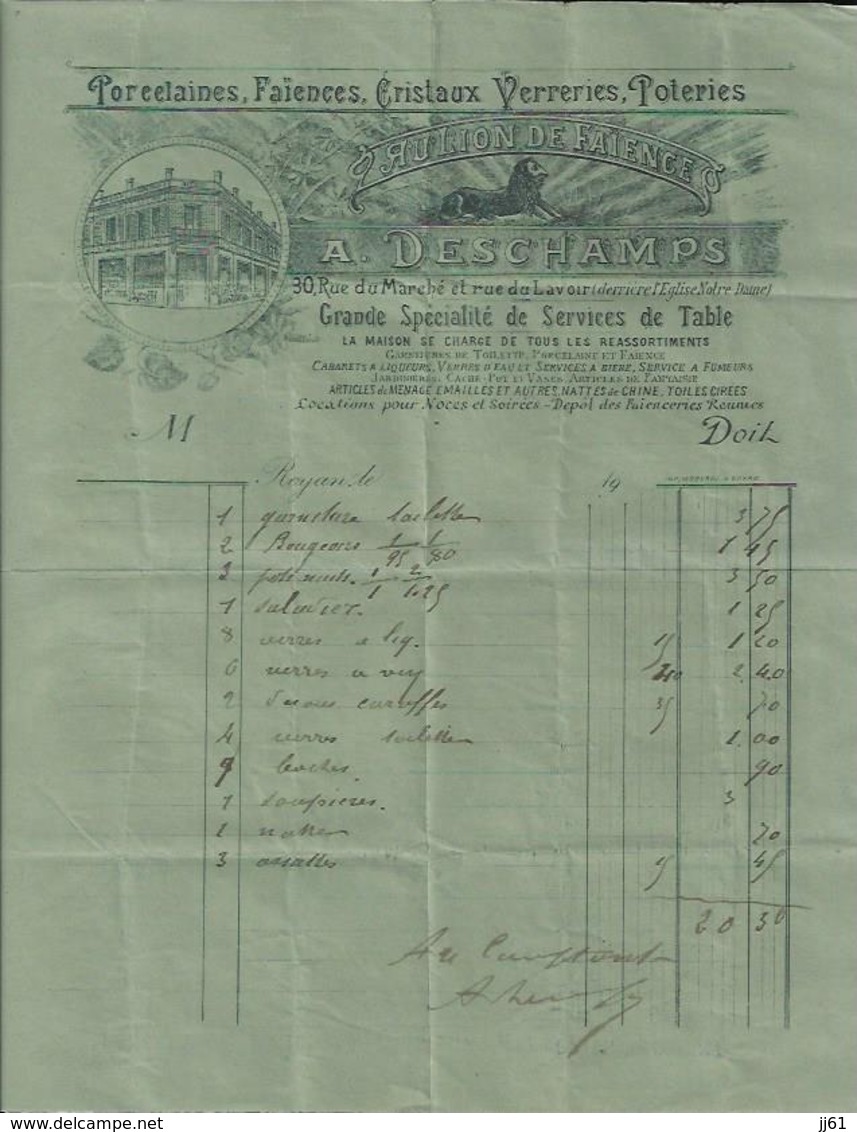 Porcelaines, Faïences, Cristaux Verreries, Poteries
AU LION DE FAÏENCE
A. DESCHAMPS
30, Rue du Marché et rue du Lavoir (derrière l'Eglise Notre Dame)
Grande Spécialité de Services de Table
LA MAISON SE CHARGE DE TOUS LES REASSORTIMENTS
GARNITURES DE TOILETTE, PORCELAINE ET FAIENCE
CABARETS A LIQUEURS, VERRES D'EAU ET SERVICES A BIERE, SERVICE A FUMEURS
JARDINIERES, CACHE-POT ET VASES, ARTICLES DE FANTAISIE
ARTICLES de MENAGE EMAILLES ET AUTRES, NATTES de CHINE, TOILES CIRÉES
Locations pour Noces et Soirées - Dépôt des Faïenceries Réunies
M Doit
Royan le 19
1 garniture toilette 3 75
2 Bougeoirs 1/95 1/80 1 45
3 1/1 2/1.25 3 50
1 saladier. 1 25
8 verres a liq. 15 1 20
6 verres a 40 2.40
2 caraffes 35 70
4 verres toilette 1.00
9 90
1 soupieres. 3
1 70
3 15 45
20 30